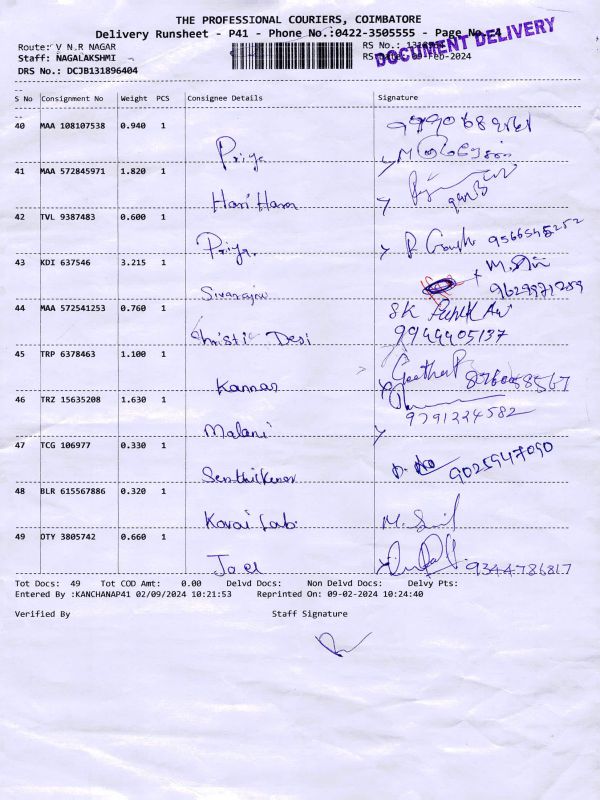 THE PROFESSIONAL COURIERS, COIMBATORE
Delivery Runsheet - P41 - Phone No.:0422-3505555 - Page No. 4
DOCUMENT DELIVERY
Route: V N.R NAGAR RS No.:
Staff: NAGALAKSHMI 09-Feb-2024
DRS No.: DCJB131896404
S No Consignment No Weight PCS Consignee Details Signature
40 MAA 108107538 0.940 1
Priya
41 MAA 572845971 1.820 1
Hari Haran
42 TVL 9387483 0.600 1
Priya. 9566545252
43 KDI 637546 3.215 1
Sivarajan 9629971259
44 MAA 572541253 0.760 1 SK
Christie Desi 9944405137
45 TRP 6378463 1.100 1 Geetha P
Kannan
46 TRZ 15635208 1.630 1 9791224582
Malani
47 TCG 106977 0.330 1
9025947090
48 BLR 615567886 0.320 1
Kovai Lab. M. Sunil
49 OTY 3805742 0.660 1
Joel 9344786817
Tot Docs: 49 Tot COD Amt: 0.00 Delvd Docs: Non Delvd Docs: Delvy Pts:
Entered By :KANCHANAP41 02/09/2024 10:21:53 Reprinted On: 09-02-2024 10:24:40
Verified By Staff Signature